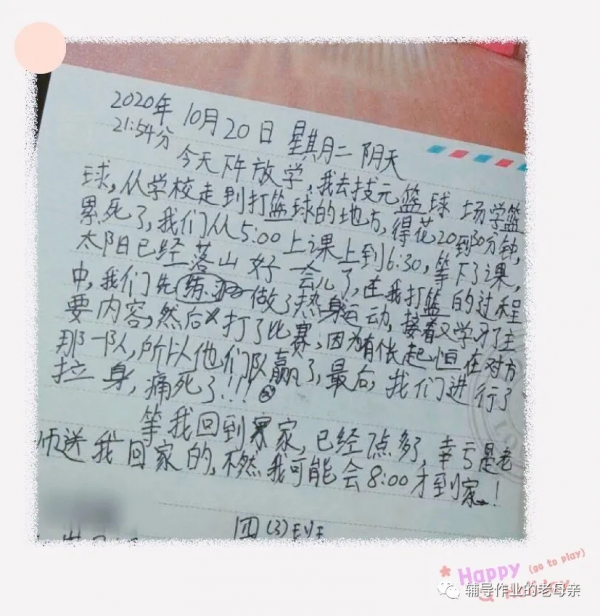 2020年 10月20日 星期二 阴天
21:54分
今天下午放学,我去技元篮球场学篮
球,从学校走到打篮球的地方,得花20到30分钟,
累死了,我们从5:00上课上到6:30,等下了课,
太阳已经落山好一会儿了,在我打篮的过程
中,我们先练习做了热身运动,接着又学习了主
要内容,然后打了比赛,因为有张起恒在对方
那一队,所以他们队赢了,最后,我们进行了
拉身,痛死了!!!
等我回到家,已经7点多了,幸亏是老
师送我回家的,不然我可能会8:00才到家!
四(3)班
Happy (go to play)
辅导作业的老母亲